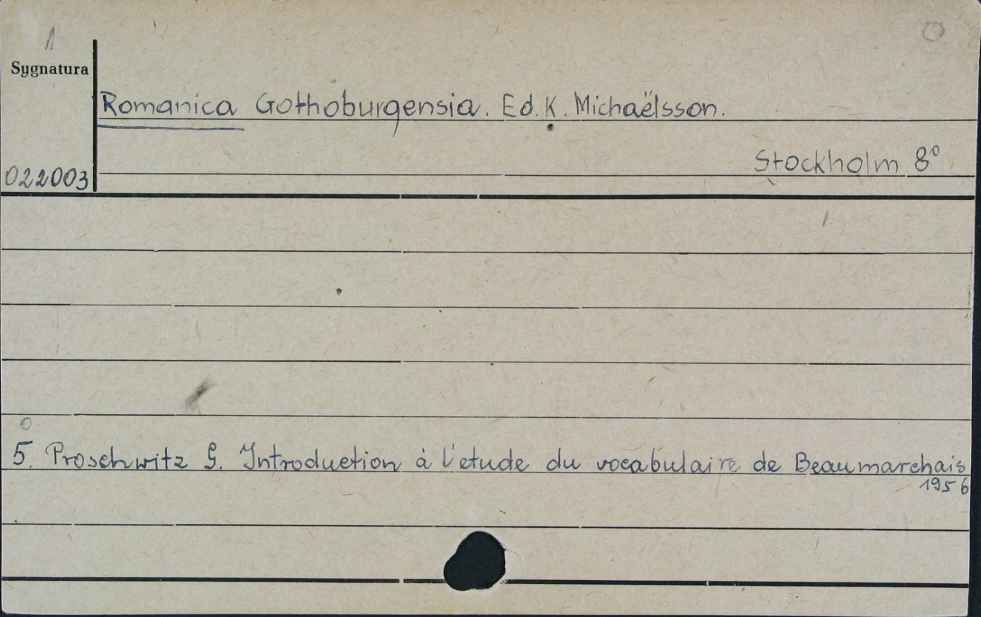 1
Sygnatura
Romanica Gothoburgensia. Ed. K. Michaëlsson.
Stockholm 8°
022003
5. Proschwitz G. Introduction à l'etude du vocabulaire de Beaumarchais
1956